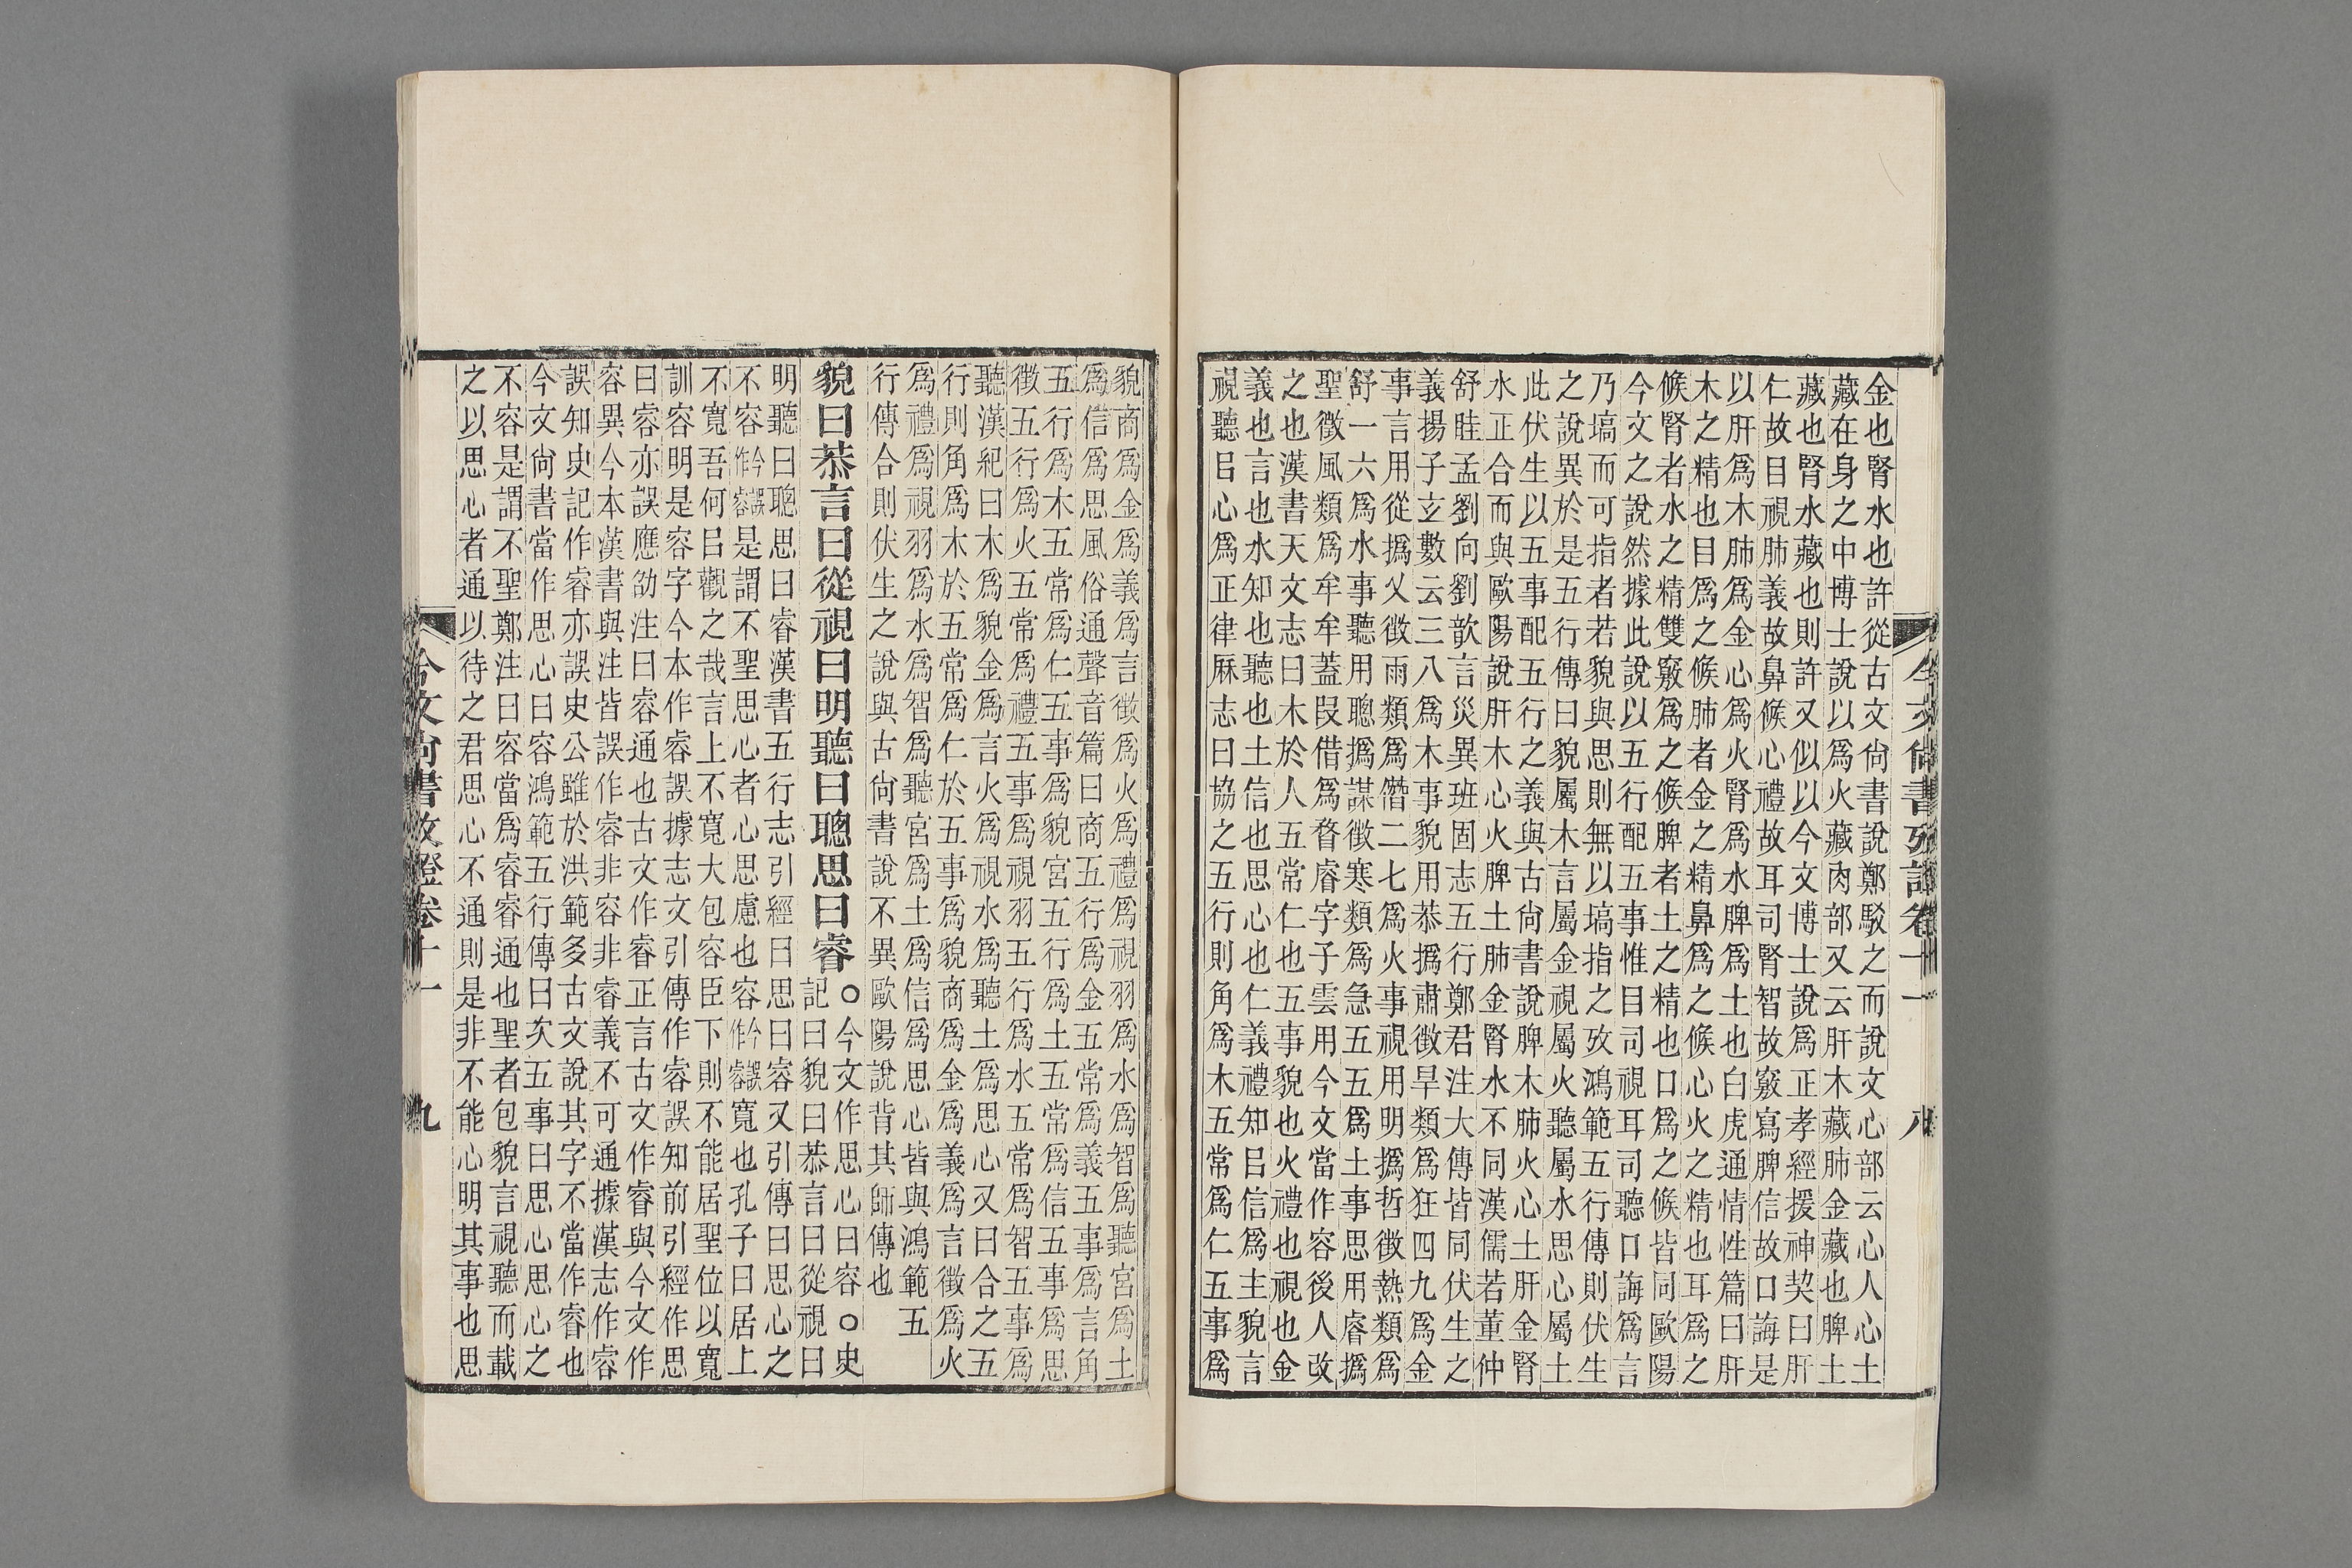 金也腎水也許從古文尚書說鄭駁之而說文心部云心人心土
藏在身之中博士說以爲火藏肉部又云肝木藏肺金藏也脾土
藏也腎水藏也則許又似以今文博士說爲正孝經援神契曰肝
仁故目視肺義故鼻候心禮故耳司腎智故竅寫脾信故口誨是
以肝爲木肺爲金心爲火腎爲水脾爲土也白虎通情性篇曰肝
木之精也目爲之候肺者金之精鼻爲之候心火之精也耳爲之
候腎者水之精雙竅爲之候脾者土之精也口爲之候皆同歐陽
今文之說然據此說以五行配五事惟目司視耳司聽口誨爲言
乃塙而可指者若貌與思則無以塙指之攷鴻範五行傳則伏生
之說異於是五行傳曰貌屬木言屬金視屬火聽屬水思心屬土
此伏生以五事配五行之義與古尚書說脾木肺火心土肝金腎
水正合而與歐陽說肝木心火脾土肺金腎水不同漢儒若董仲
舒眭孟劉向劉歆言災異班固志五行鄭君注大傳皆同伏生之
義揚子玄數云三八爲木事貌用恭撝肅徵旱類爲狂四九爲金
事言用從撝乂徵雨類爲僭二七爲火事視用明撝哲徵熱類爲
舒一六爲水事聽用聰撝謀徵寒類爲急五五爲土事思用睿撝
聖徵風類爲牟牟蓋叚借爲瞀睿字子雲用今文當作容後人改
之也漢書天文志曰木於人五常仁也五事貌也火禮也視也金
義也言也水知也聽也土信也思心也仁義禮知㠯信爲主貌言
視聽㠯心爲正律厤志曰協之五行則角爲木五常爲仁五事爲
貌商爲金爲義爲言徵爲火爲禮爲視羽爲水爲智爲聽宮爲土
爲信爲思風俗通聲音篇曰商五行爲金五常爲義五事爲言角
五行爲木五常爲仁五事爲貌宮五行爲土五常爲信五事爲思
徵五行爲火五常爲禮五事爲視羽五行爲水五常爲智五事爲
聽漢紀曰木爲貌金爲言火爲視水爲聽土爲思心又曰合之五
行則角爲木於五常爲仁於五事爲貌商爲金爲義爲言徵爲火
爲禮爲視羽爲水爲智爲聽宮爲土爲信爲思心皆與鴻範五
行傳合則伏生之說與古尚書說不異歐陽說背其師傳也
貌曰恭言曰從視曰明聽曰聰思曰睿○今文作思心曰容○史
記曰貌曰恭言曰從視曰
明聽曰聰思曰睿漢書五行志引經曰思曰容又引傳曰思心之
不容今誤作睿是謂不聖思心者心思慮也容今誤作睿寬也孔子曰居上
不寬吾何㠯觀之哉言上不寬大包容臣下則不能居聖位以寬
訓容明是容字今本作睿誤據志文引傳作容誤知前引經作思
曰睿亦誤應劭注曰容通也古文作睿正言古文作睿與今文作
容異今本漢書與注皆誤作睿非容非睿義不可通據漢志作容
誤知史記作睿亦誤史公雖於洪範多古文說其字不當作睿也
今文尚書當作思心曰容鴻範五行傳曰次五事曰思心思心之
不容是謂不聖鄭注曰容當爲睿睿通也聖者包貌言視聽而載
之以思心者通以待之君思心不通則是非不能心明其事也思
今文尚書攷證卷十一
九